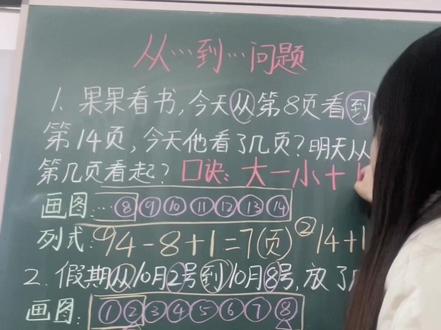 从…到…问题
1. 果果看书,今天从第8页看到
第14页,今天他看了几页?明天从
第几页看起? 口诀:大一小十
画图:…⑧⑨⑩⑪⑫⑬⑭
列式:①14-8+1=7(页) ②14+1
2. 假期从10月2号到10月8号,放了
画图:①②③④⑤⑥⑦⑧